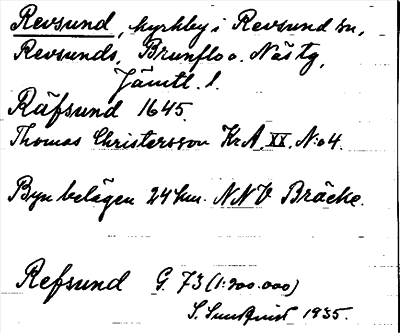 Revsund, kyrkby i Revsund sn,
Revsunds, Brunflo o. Näs tg,
Jämtl. l.
Räfsund 1645.
Thomas Christersson KrA, XX, N:o 4.
Byn belägen 24 km. NNV Bräcke.
Refsund G. 73 (1:200.000)
S. Sundquist 1935.